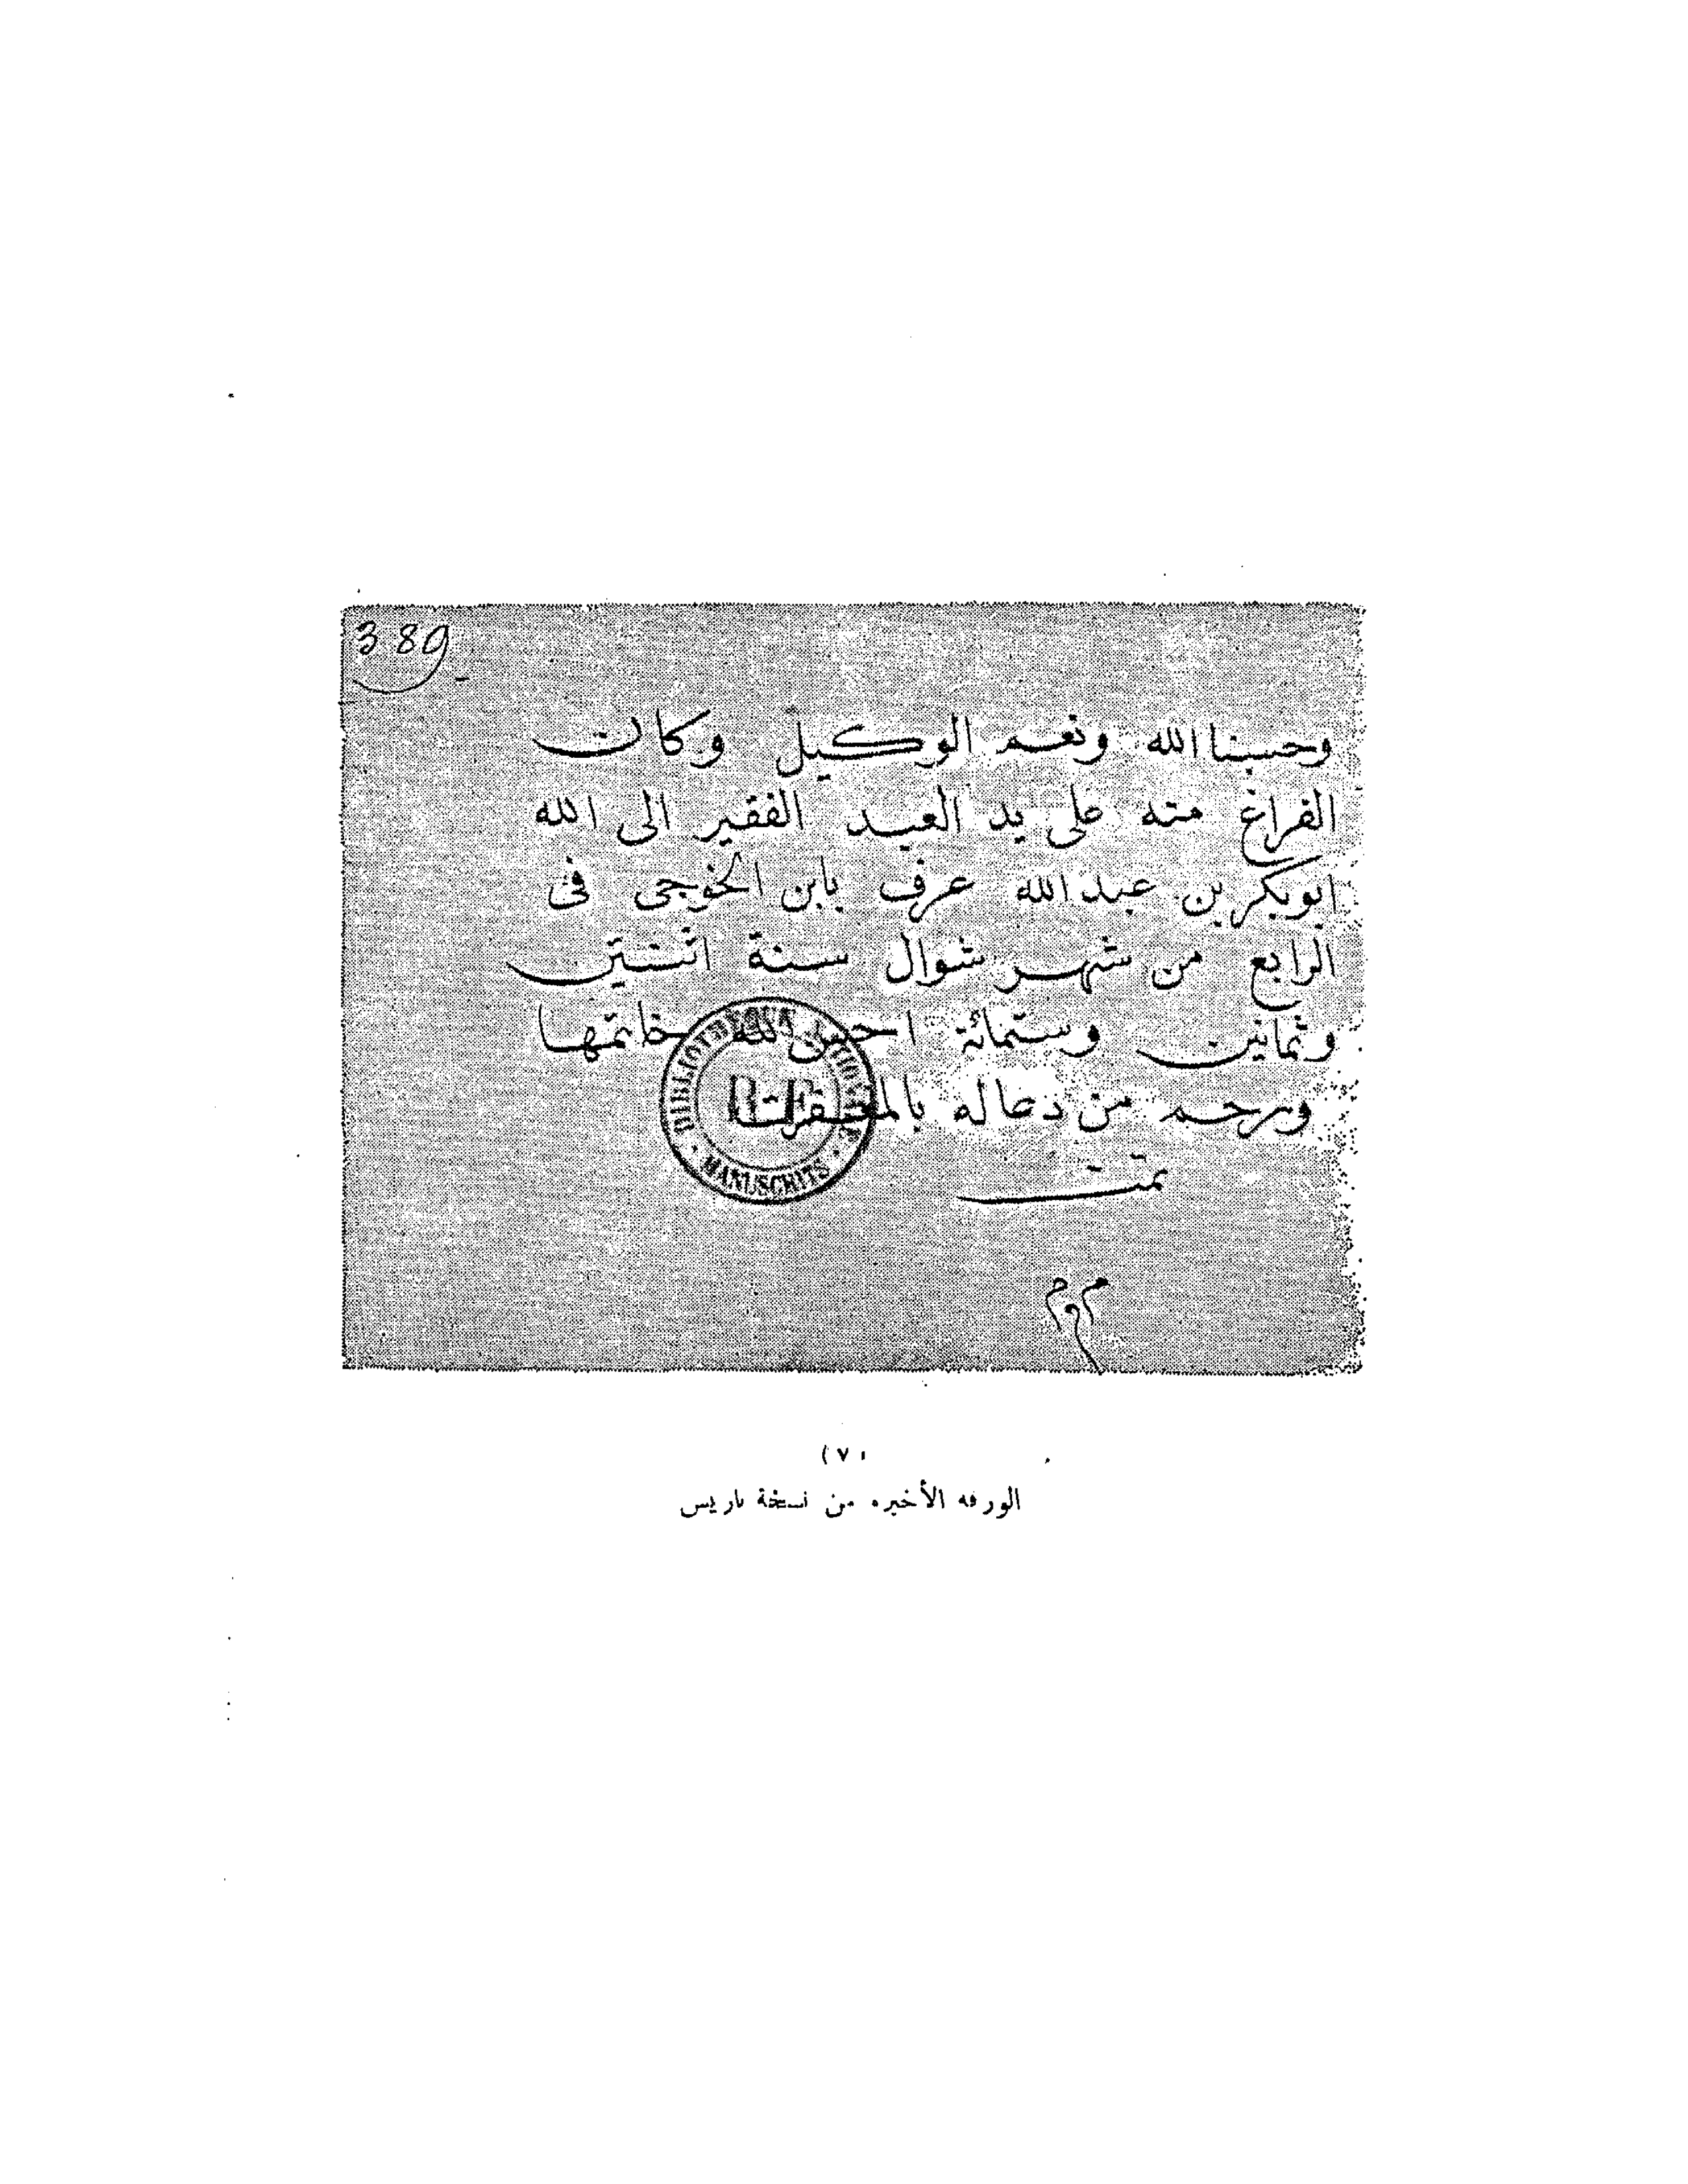 389
وحسبنا الله ونعم الوكيل وكان
الفراغ منه على يد العبد الفقير الى الله
ابوبكر بن عبد الله عرف بابن الخوجى فى
الرابع من شهر شوال سنة اثنتين
وثمانين وستمائة احسن الله خاتمتها
ويرحم من دعا له بالمغفرة
تمت
BIBLIOTHEQUE NATIONALE
R.F.
MANUSCRITS
(٧)
الورقه الأخيره من نسخة باريس